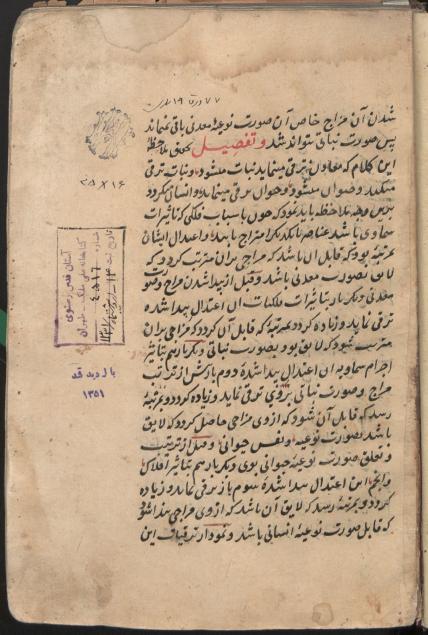 ۷۷ ورق ۱۹ سطر
شدن آن مزاج خاص آن صورت نوعیهٔ معدنی باقی نماند
پس صورت نباتی تواند شد و تفصیل
این کلام که معادن ترقی مینماید نبات میشود و نبات ترقی
میکند و حیوان میشود و حیوان ترقی مینماید و انسان میکردد
برین وجه ملاحظه باید نمود که چون باسباب فلکی که تاثیرات
سماوی باشد عناصر با یکدیکر امتزاج یابند و اعتدال ایشان
بمرتبهٔ بود که قابل آن باشد که مزاجی بران مترتب کردد که
لایق بصورت معدنی باشد و قبل از پیدا شدن مزاج و صورت
معدنی دیکر بار بتاثیرات فلکیات آن اعتدال پیدا شده
ترقی نماید و زیاده کردد و بمرتبهٔ که قابل آن کردد که مزاجی بران
مترتب شود که لایق بود بصورت نباتی و دیکر بار هم بتاثیر
اجرام سماویه آن اعتدال پیدا شدهٔ دوم باز پیش از ترتب
مزاج و صورت نباتی بروی ترقی نماید و زیاده کردد و بمرتبهٔ
رسد که قابل آن شود که از وی مزاجی حاصل کردد که لایق
باشد بصورت نوعیه و نفس حیوانی و قبل از ترتب
و تعلق صورت نوعیهٔ حیوانی بوی دیکر بار هم بتاثیر افلاک
و انجم این اعتدال پیدا شدهٔ سوم باز ترقی نماید و زیاده
کردد و بمرتبهٔ رسد که لایق آن باشد که از وی مزاجی پیدا شود
که قابل صورت نوعیهٔ انسانی باشد و نمودار ترقیات این
۱۶ × ۲۵
آستان قدس رضوی
کتابخانه ملی ملک - طهران
شماره ۴۵۶۶
تاریخ ثبت
بازدید شد
۱۳۵۱